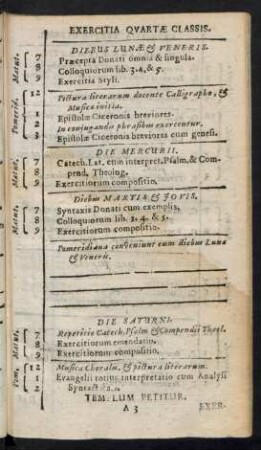 EXERCITIA QVARTÆ CLASSIS.
DIEBUS LUNÆ & VENERIS.
Matut. 7 Præcepta Donati omnia & singula.
8 Colloquiorum lib. 3. 4. & 5.
9 Exercitia Styli.
Pomerid. 12 Pictura literarum docente Calligrapho, &
Musica initia.
1 Epistolæ Ciceronis breviores.
2 In conjugandis phrasibus exercentur.
3 Epistolæ Ciceronis breviores cum genesi.
DIE MERCURII.
Matut. 7 Catech. Lat. cum interpret. Psalm. & Com-
8 pend. Theolog.
9 Exercitiorum compositio.
Diebus MARTIS & JOVIS.
Matut. 7 Syntaxis Donati cum exemplis.
8 Colloquiorum lib. 3. 4. & 5.
9 Exercitiorum compositio.
Pomeridiana conveniunt cum diebus Lunæ
& Veneris.
DIE SATURNI.
Matut. 7 Repetitio Catech. Psalm & Compendii Theol.
8 Exercitiorum emendatio.
9 Exercitiorum compositio.
Pom. 12 Musica Choralis, & pictura literarum.
1 Evangelii totius interpretatio cum Analysi
2
TEMPLUM PETITUR.
A 3 EXER-